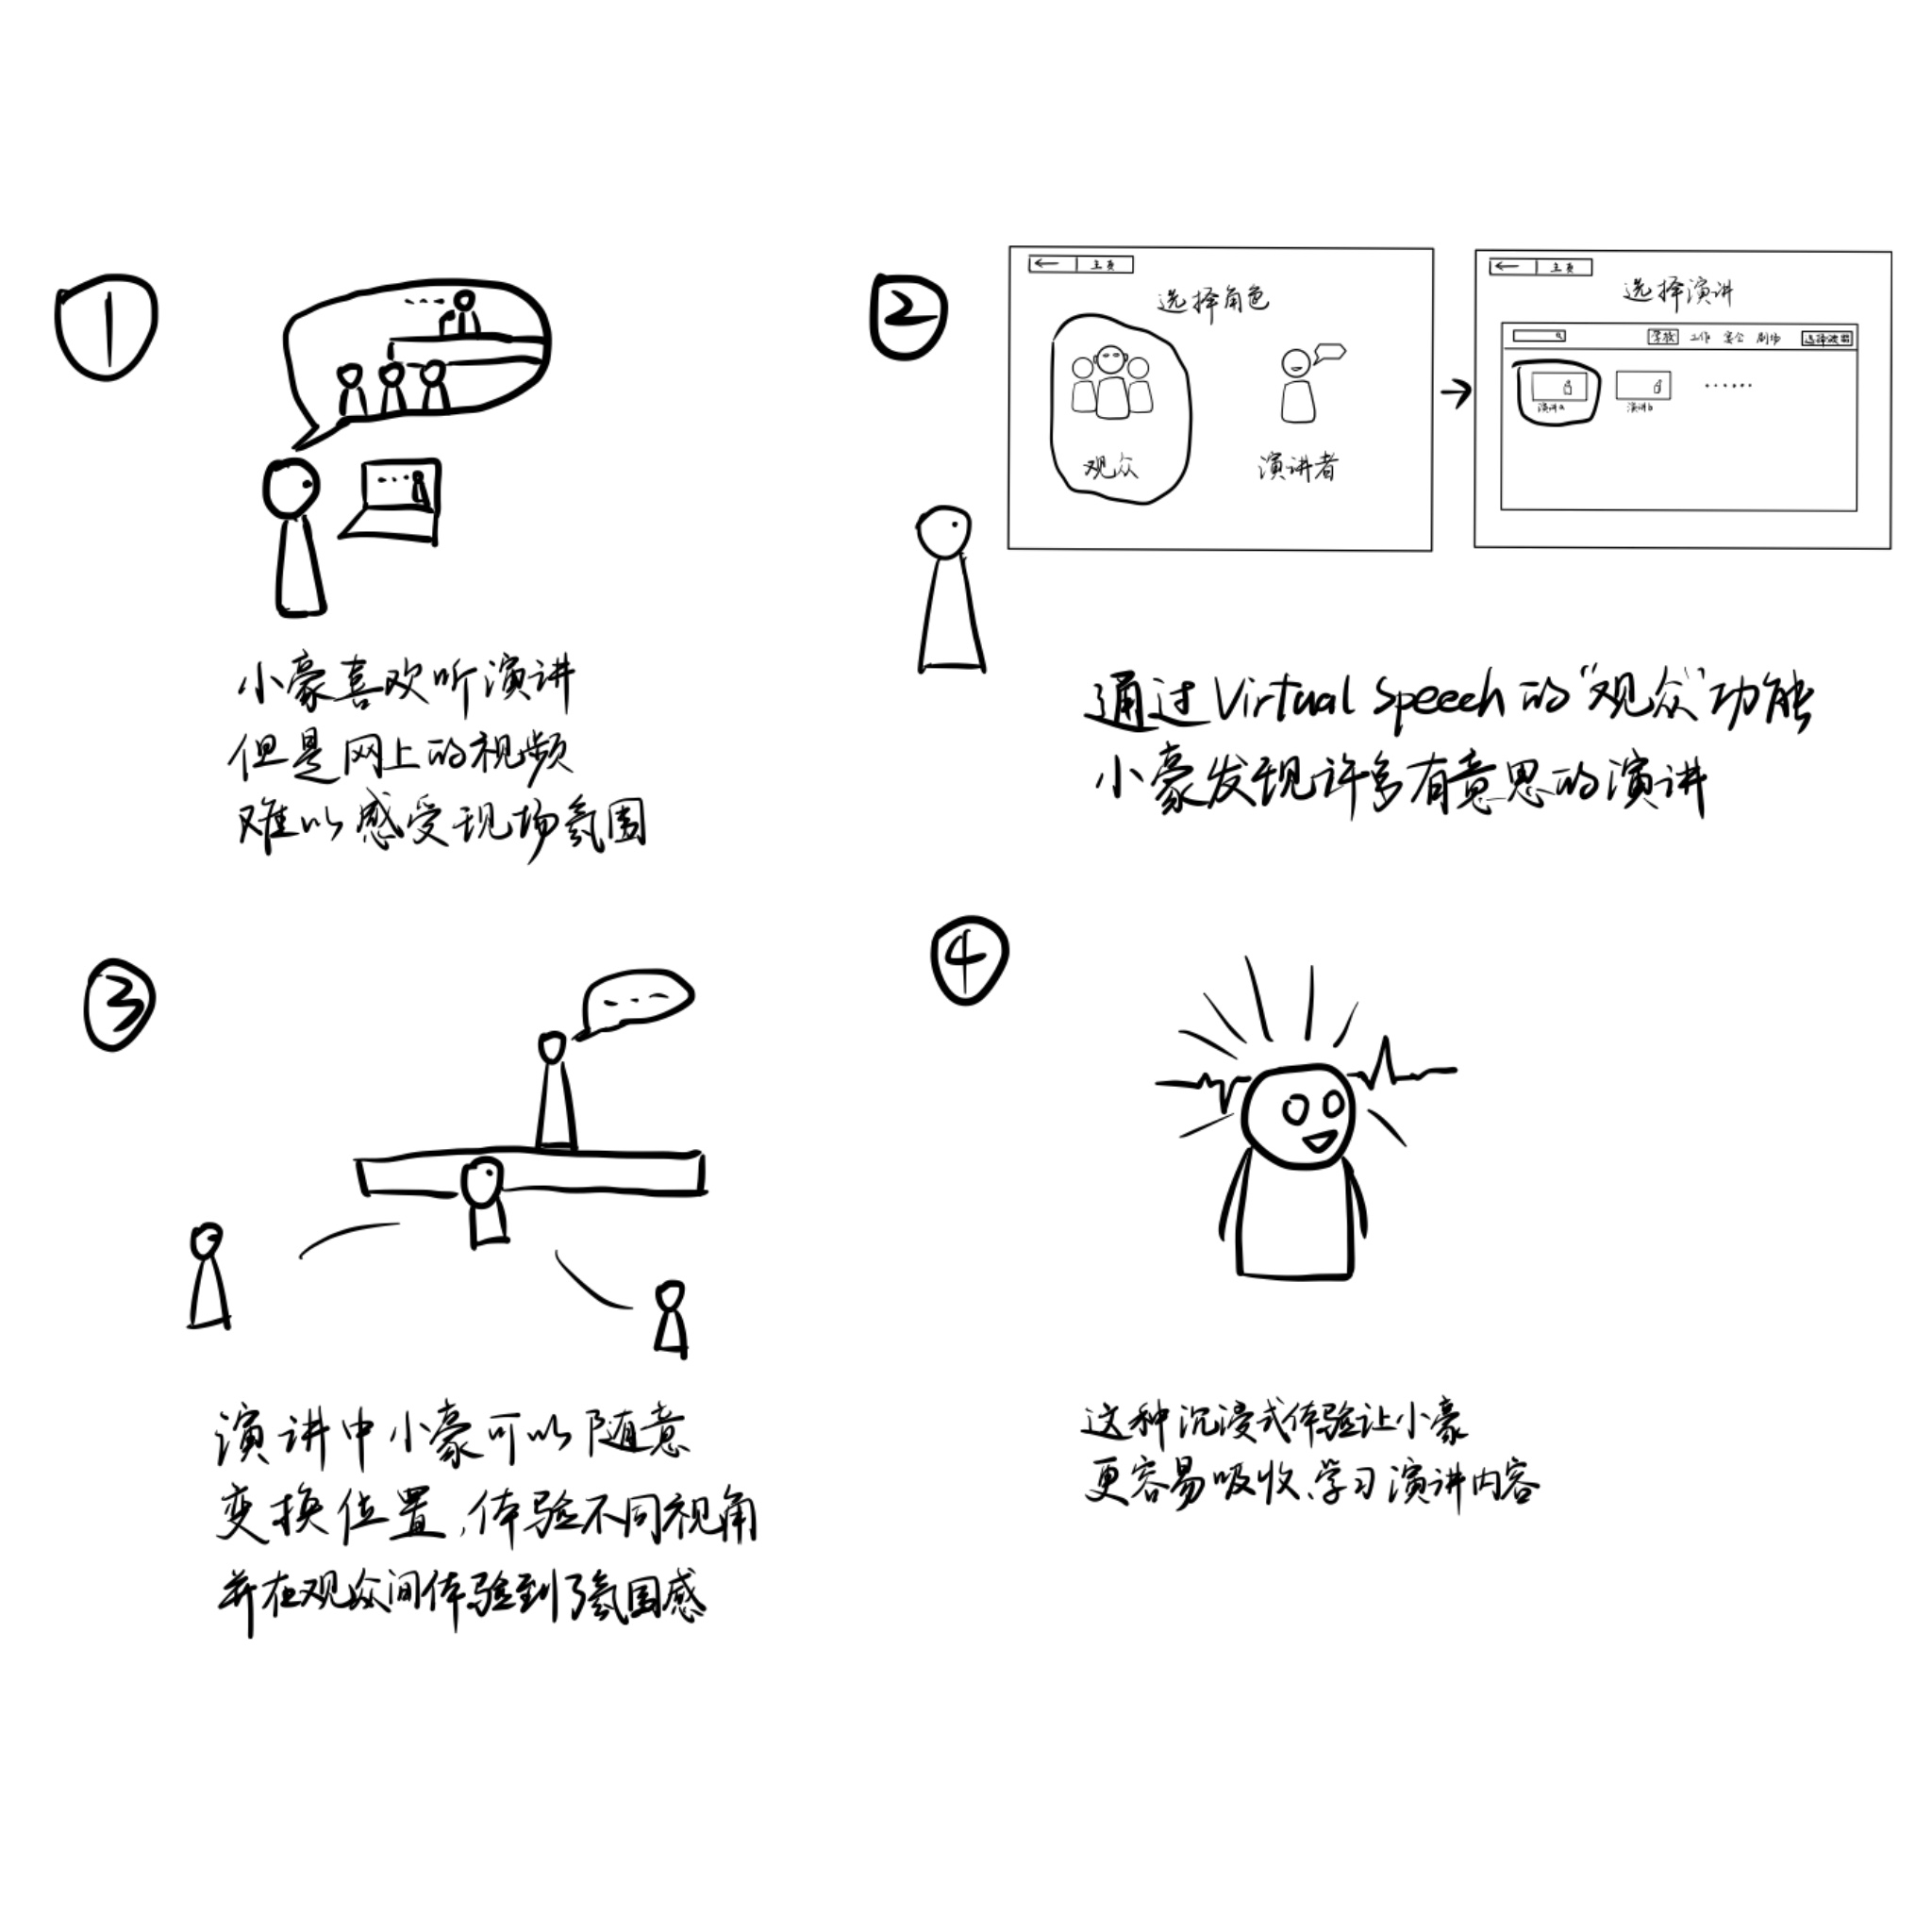 1
小豪喜欢听演讲
但是网上的视频
难以感受现场氛围
2
← 主页
选择角色
观众
演讲者
← 主页
选择演讲
学校 工作 宴会 剧场
演讲a
演讲b
......
通过Virtual Speech的“观众”功能
小豪发现许多有意思的演讲
3
演讲中小豪可以随意
变换位置,体验不同视角
并在观众间体验到了氛围感
4
这种沉浸式体验让小豪
更容易吸收、学习演讲内容